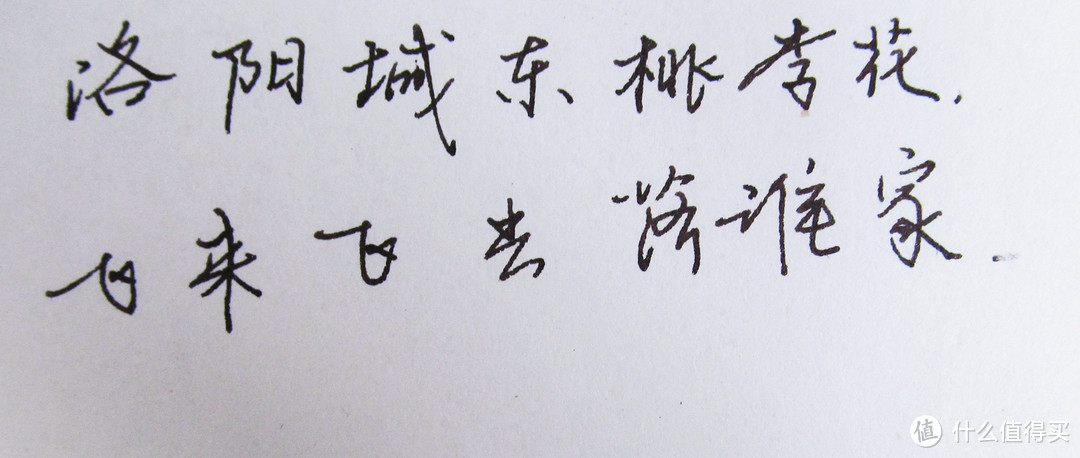 洛阳城东桃李花.
飞来飞去落谁家.
值 什么值得买